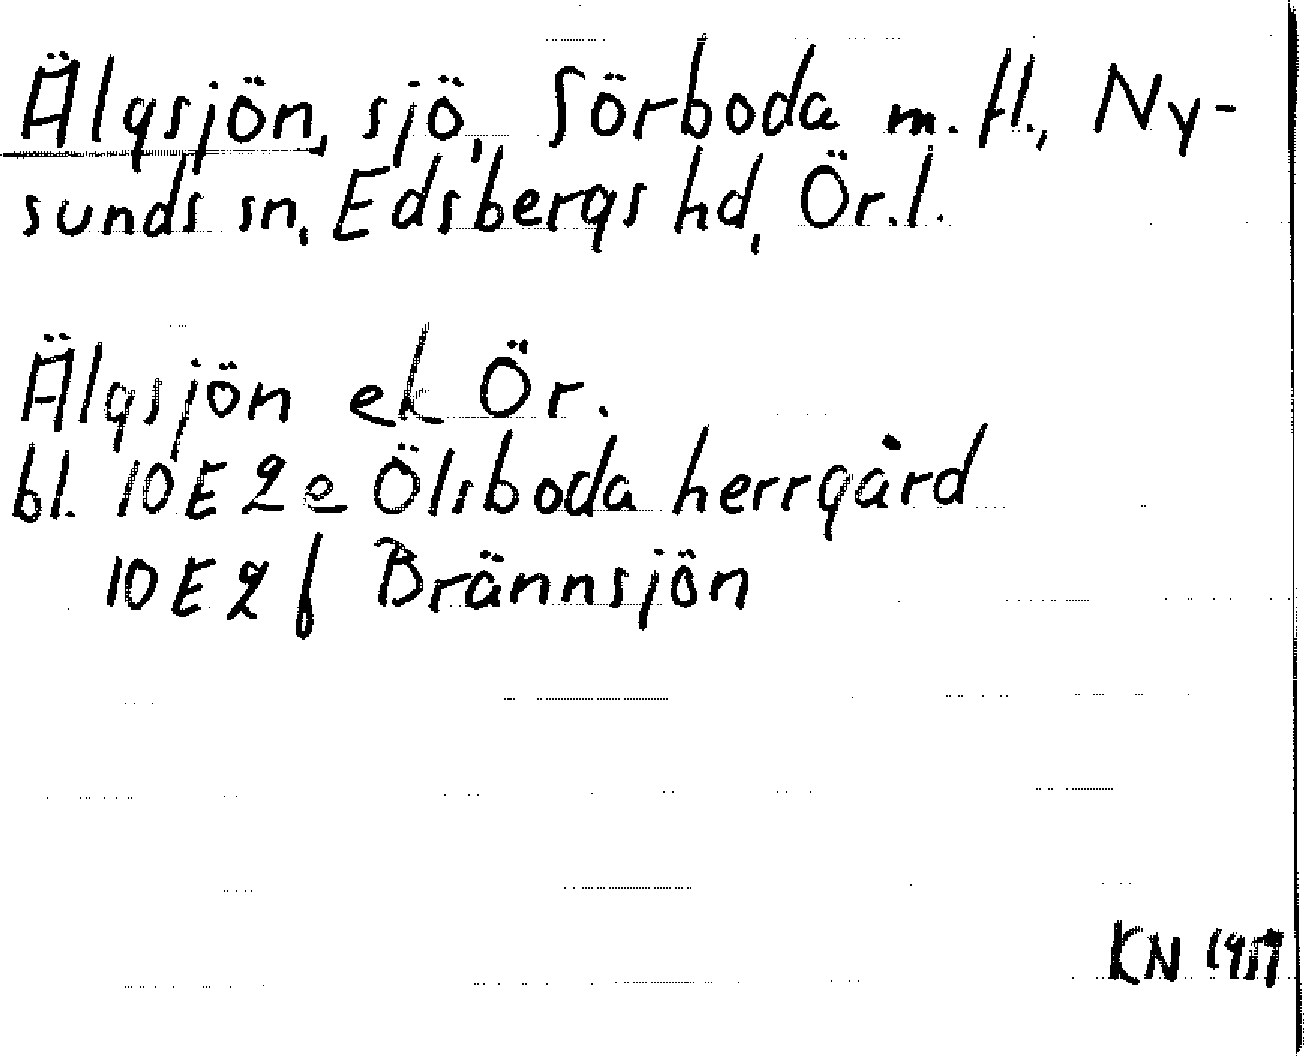 Älgsjön, sjö, Sörboda m. fl., Ny-
sunds sn, Edsbergs hd, Ör. l.
Älgsjön ek Ör.
bl. 10 E 2 e Ölsboda herrgård
10 E 2 f Brännsjön
KN